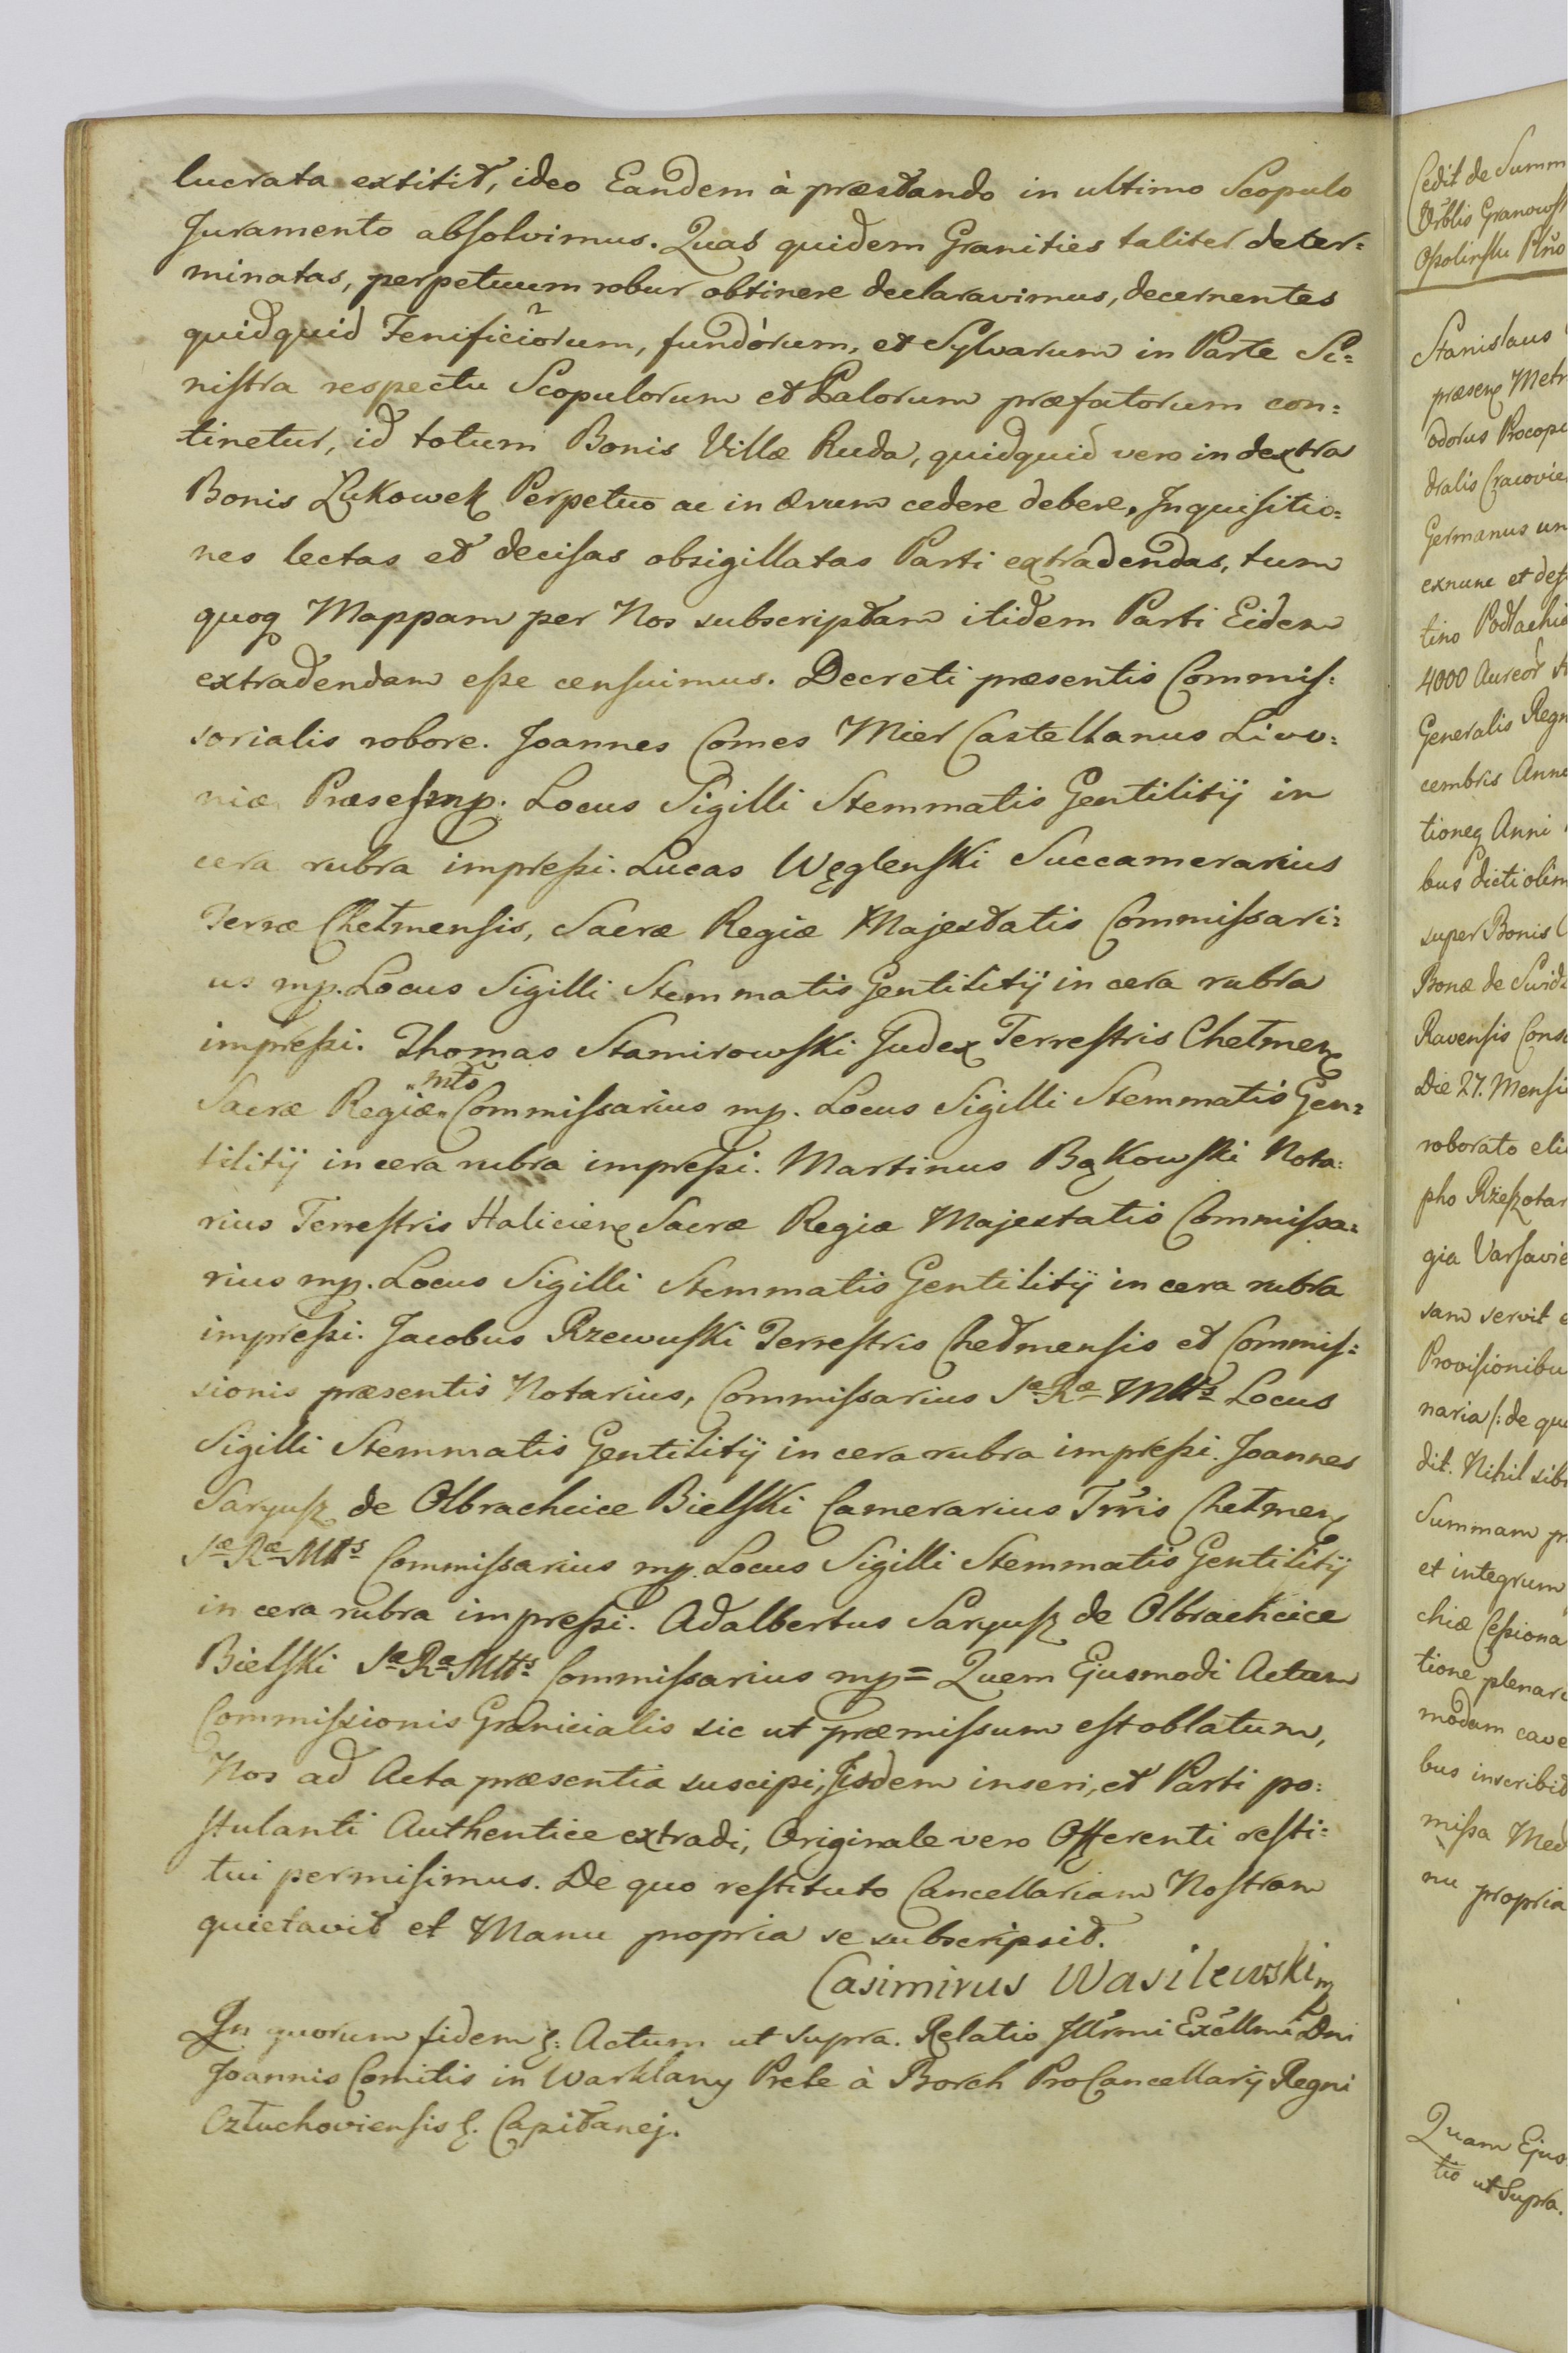 lucrata extitit, ideo Eandem à præstando in ultimo Scopulo
Juramento absolvimus. Quas quidem Granities taliter deter=
minatas, perpetuum robur obtinere declaravimus, decernentes
quidquid Fenificiorum, fundorum, et Sylvarum in Parte Si=
nistra respectu Scopulorum et Palorum præfatorum con=
tinetur, id totum Bonis Villæ Ruda, quidquid vero in dextra
Bonis Łukowek Perpetuo ac in ævum cedere debere, Inquisitio=
nes lectas et decisas obsigillatas Parti extradendas, tum
quoq Mappam per Nos subscriptam itidem Parti Eidem
extradendam esse censuimus. Decreti præsentis Commis=
sorialis robore. Joannes Comes Mier Castellanus Livo=
niæ Præses mp. Locus Sigilli Stemmatis Gentilitij in
cera rubra impressi. Lucas Węglenski Succamerarius
Terræ Chełmensis, Sacræ Regiæ Majestatis Commissari=
us mp. Locus Sigilli Stemmatis Gentilitij in cera rubra
impressi. Thomas Stamirowski Judex Terrestris Chełmen
Sacræ Regiæ Mtis Commissarius mp. Locus Sigilli Stemmatis Gen=
tilitij in cera rubra impressi. Martinus Bąkowski Nota=
rius Terrestris Halicien Sacræ Regiæ Majestatis Commissa=
rius mp. Locus Sigilli Stemmatis Gentilitij in cera rubra
impressi. Jacobus Rzewuski Terrestris Chełmensis et Commis=
sionis præsentis Notarius, Commissarius Sæ Ræ Mttis Locus
Sigilli Stemmatis Gentilitij in cera rubra impressi. Joannes
Saryusz de Olbrachcice Bielski Camerarius Trris Chełmen
Sæ Ræ Mtts Commissarius mp. Locus Sigilli Stemmatis Gentilitij
in cera rubra impressi. Adalbertus Saryusz de Olbrachcice
Bielski Sæ Ræ Mtts Commissarius mp= Quem Ejusmodi Actum
Commissionis Granicialis sic ut præmissum est oblatum,
Nos ad Acta præsentia suscipi, Iisdem inseri, et Parti po=
stulanti Authentice extradi, Originale vero Offerenti resti=
tui permisimus. De quo restituto Cancellariam Nostram
quietavit et Manu propria se subscripsit.
Casimirus Wasilewski mp
In quorum fidem &. Actum ut supra. Relatio Illrmi Excllmi Dni
Joannis Comitis in Warklany Prele à Borch ProCancellarij Regni
Człuchoviensis &. Capitanej.
Cedit de Summ
Opolinsku
Stanislaus
præsen Metr
odorus Procopi
dralis Cracovie
Germanus un
exnunc et des
tino Podlachi
4000 Aureor
Generalis Regn
cembris Anno
tioneq Anni
bus dicti olim
super Bonis
Bonæ de
Ravensis Cons
Die 27. Mensi
roborato eli
pho Rzeszotar
gia Varsavie
sam servit e
Provisionibu
naria /: de qu
dit. Nihil sib
Summam pr
et integrum
chiæ Cessiona
tione plenari
modum cave
bus inscribit
missa Med
nu propria
Quam Ejus
tio ut Supra.